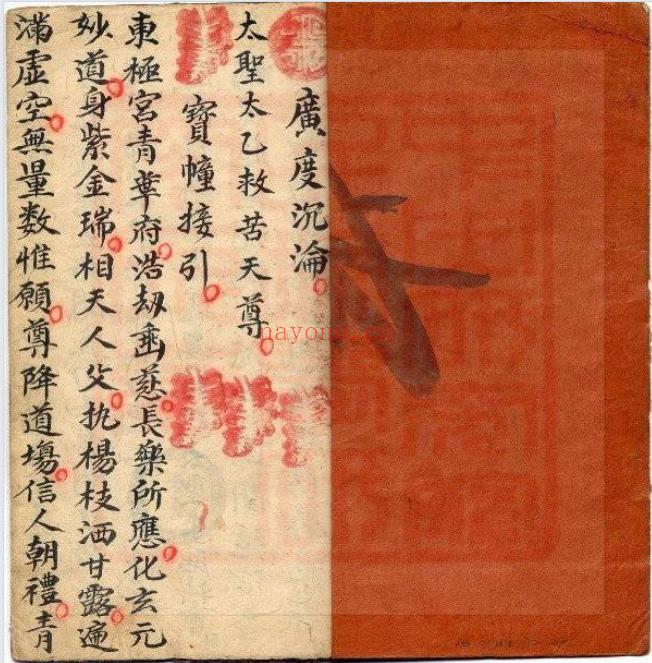 廣度沉淪
太聖太乙救苦天尊
寶幢接引
東極宮青華府浩刼垂慈長樂所應化玄元
妙道身紫金瑞相天人父执楊枝洒甘露遍
滿虛空無量数惟願尊降道塲信人朝禮青